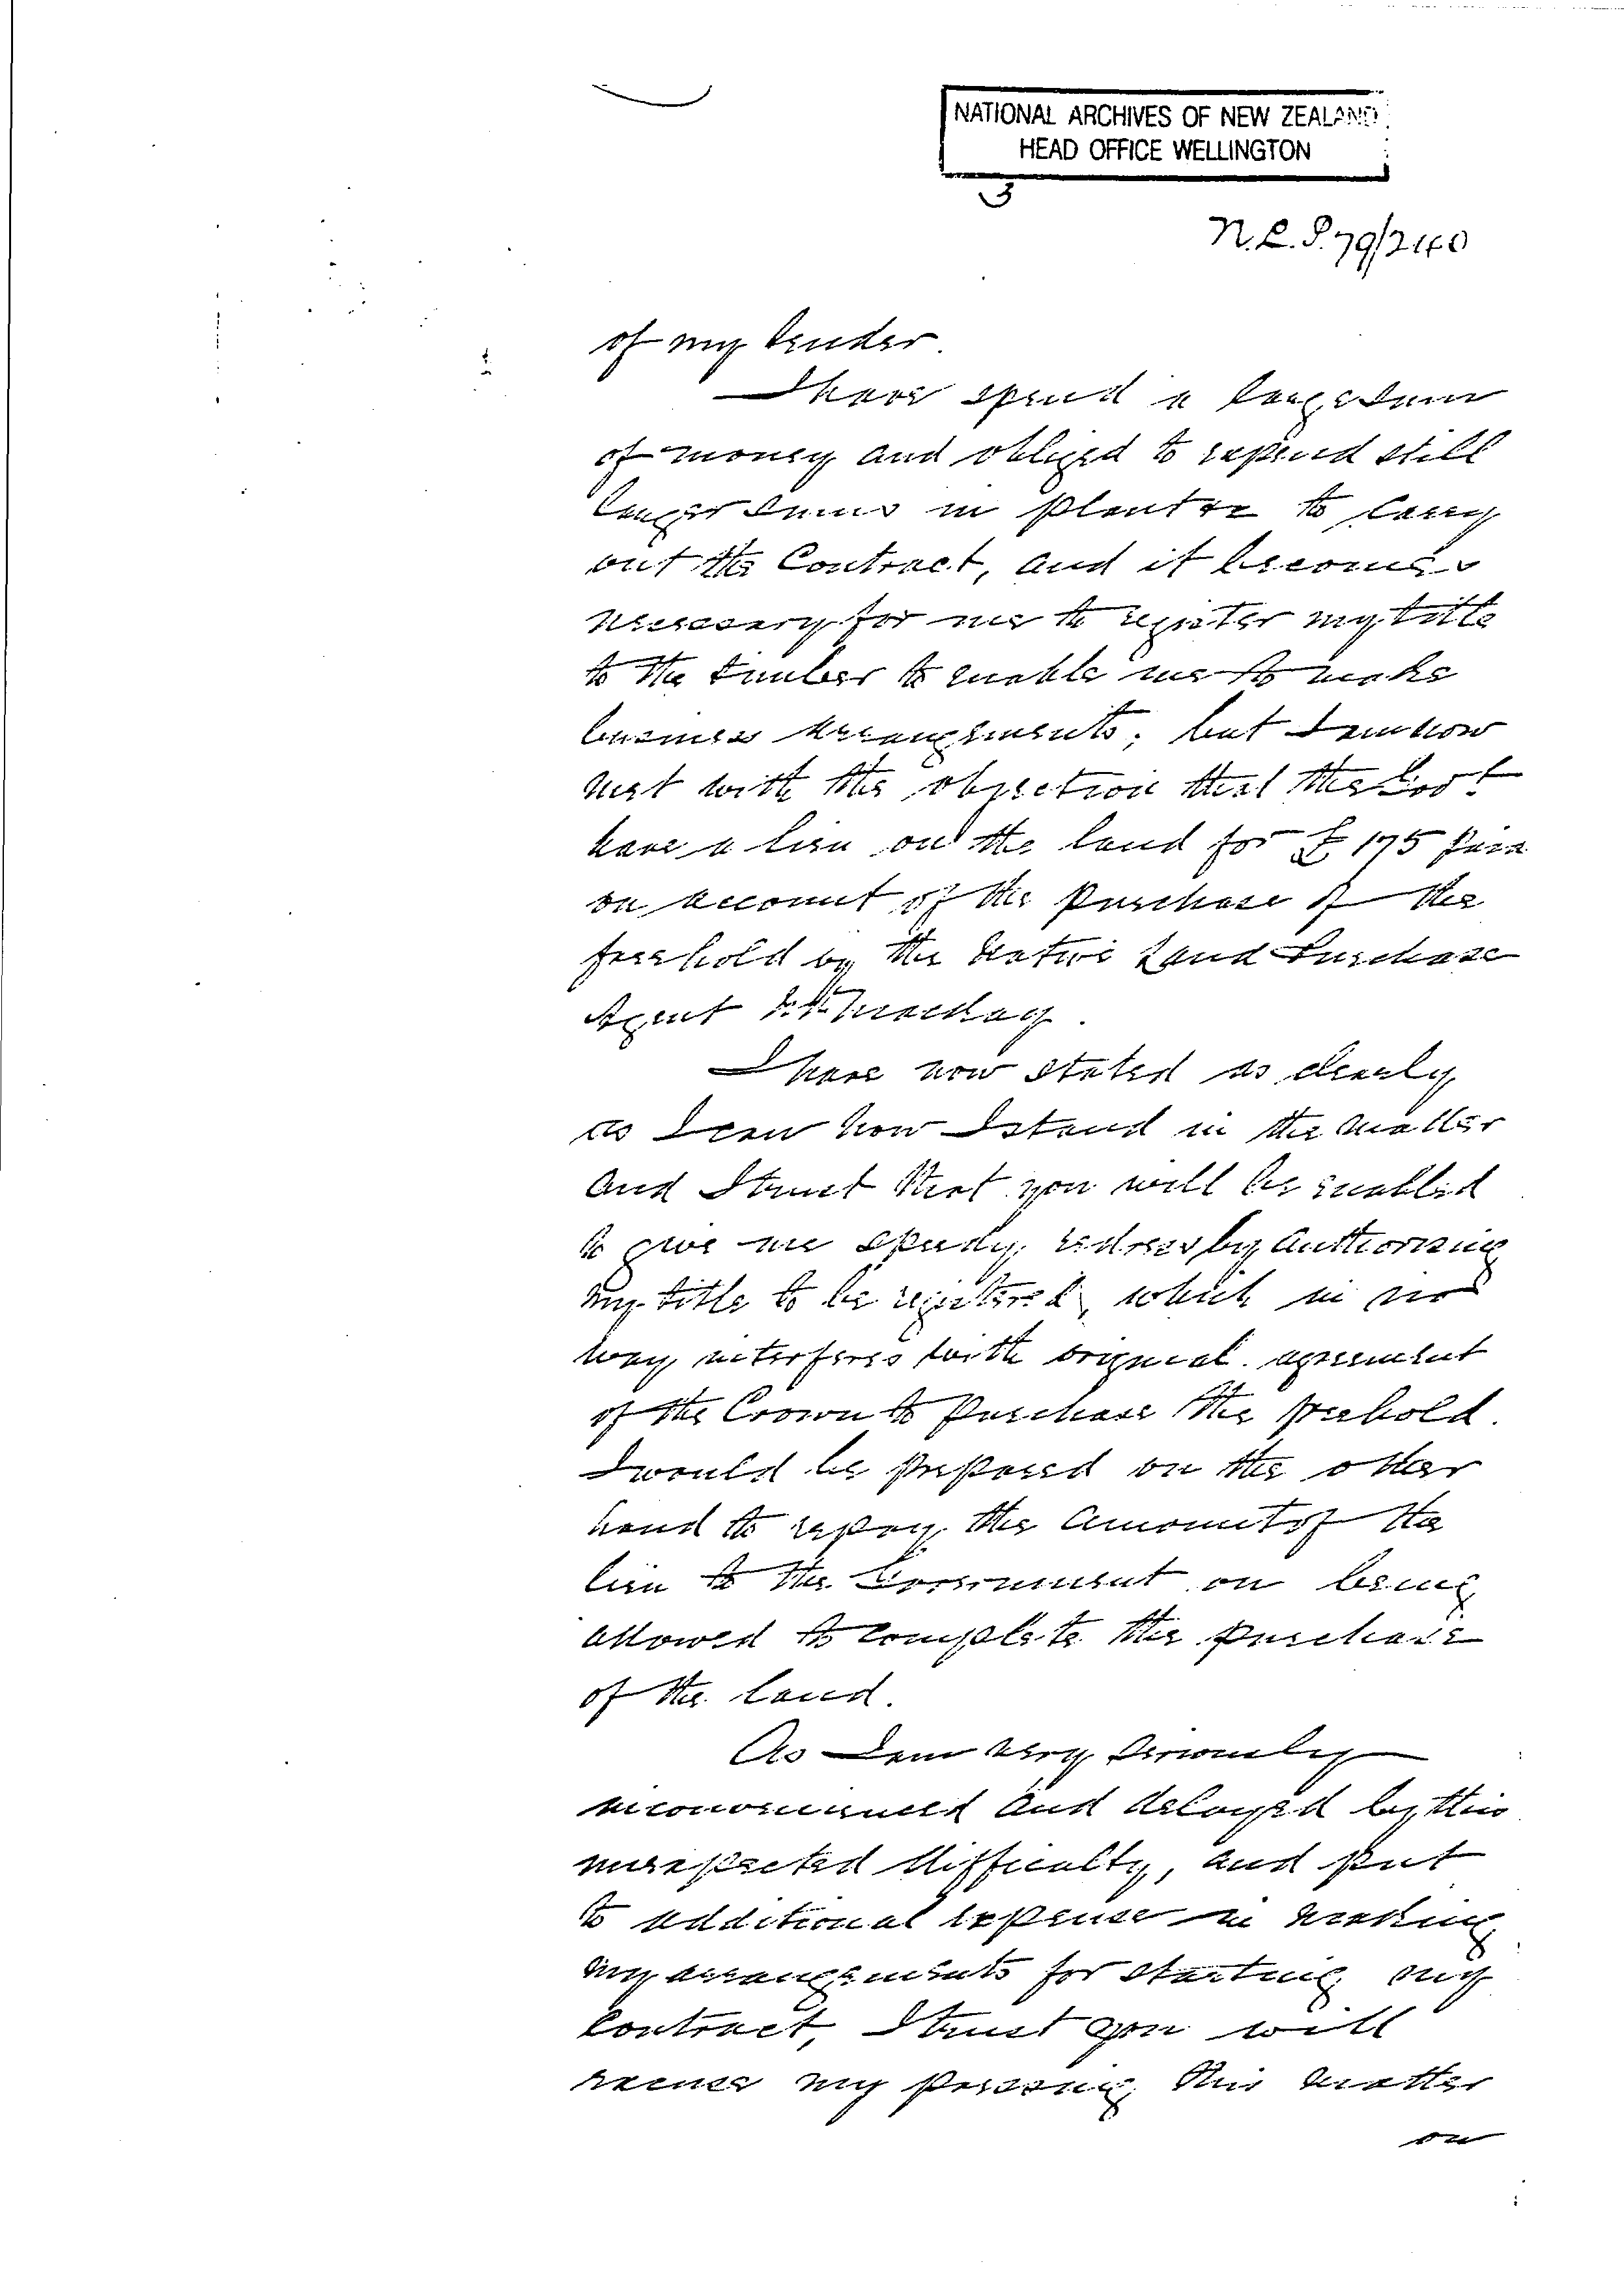 NATIONAL ARCHIVES OF NEW ZEALAND
HEAD OFFICE WELLINGTON
N.L.P. 79/240
of my tender.
I have spend a large sum
of money and obliged to expend still
larger sums in plant &c to carry
out the Contract, and it becomes
necessary for me to register my title
to the timber to enable me to make
business arrangements; but I am now
met with the objection that the Govt
have a lien on the land for £175 paid
on account of the purchase of the
freehold by the Native Land Purchase
Agent Mackay.
I have now stated as clearly
as I can how I stand in the matter
and I trust that you will be enabled
to give me speedy redress by authorising
my title to be registered, which in no
way interferes with original agreement
of the Crown to purchase the freehold.
I would be prepared on the other
hand to repay the amount of the
lien to the Government on being
allowed to complete the purchase
of the land.
As I am very seriously
inconvenienced and delayed by this
unexpected difficulty, and put
to additional expense in making
my arrangements for starting my
contract, I trust you will
excuse my pressing this matter
on